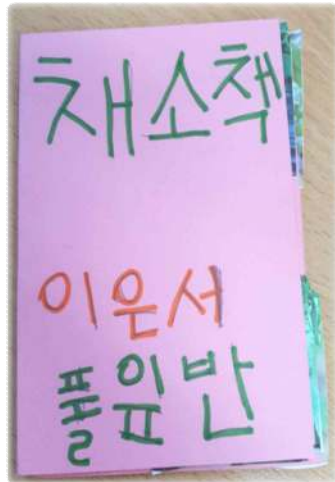 채소책
이은서
풀잎반